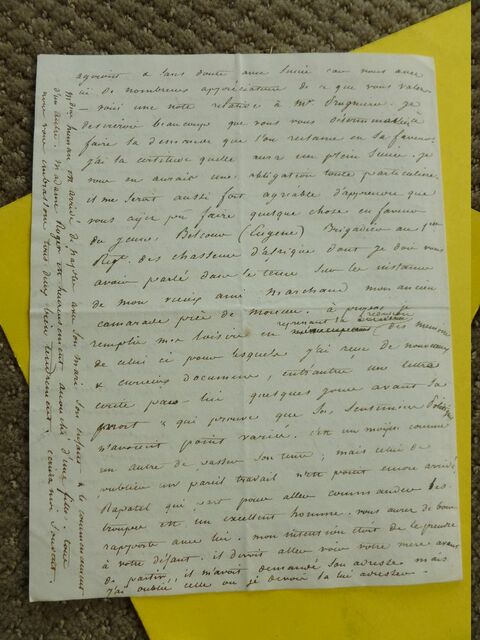 agiront & sans doute avec succès car nous avons
ici de nombreux appréciateurs de ce que vous valez
— voici une note relative à Mr je
desirerais beaucoup que vous vous à
faire la demande que l'on reclame en sa faveur.
j'ai la certitude quelle aura un plein succès. je
vous en aurais une obligation toute particuliere
il me serait aussi fort agreable d'apprendre que
vous ayez pu faire quelque chose en faveur
du jeune (Eugene) Brigadier au 1er
Regt. des chasseurs d'Afrique dont je dois vous
avoir parlé dans le tems sur les instances
de mon vieux ami Marchand mon ancien
camarade près de à propos je
remplis mes loisirs en reprenant la redaction des memoires
de celui ci pour lesquels j'ai reçu de nouveaux
& curieux documens, entr'autre une lettre
écrite par lui quelques jours avant sa
mort & qui prouve que ses sentimens politiques
n'avoient point varié. c'est un moyen comme
un autre de passer son tems; mais celui de
publier un pareil travail n'est point encore arrivé
Rapatel qui part pour aller commander des
troupes est un excellent homme. vous aurez de bons
rapports avec lui. mon intention étoit de le
à votre défaut. il devoit aller voir votre mère avant
de partir, il m'avoit demandé son adresse mais
j'ai oublié celle où je devois la lui adresser.
Mde est arrivée de avec son mari son & le commencement
d'un autre. Madame Roger est heureusement accouchée d'une fille. tous
nous vous embrassons tous deux bien tendrement. écrivez moi souvent.